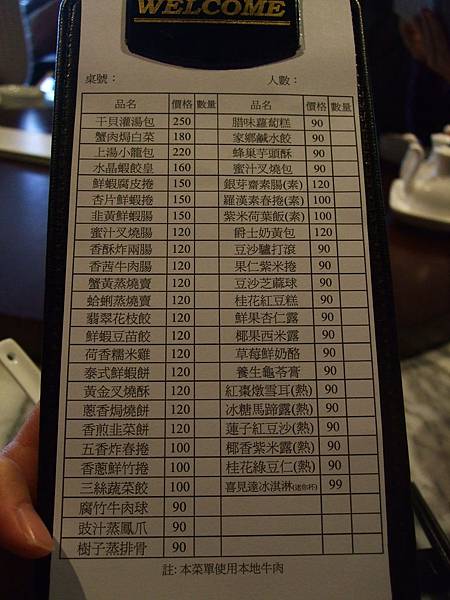 WELCOME
桌號： 人數：
品名 價格 數量 品名 價格 數量
干貝灌湯包 250 腊味蘿蔔糕 90
蟹肉焗白菜 180 家鄉鹹水餃 90
上湯小龍包 220 蜂巢芋頭酥 90
水晶蝦餃皇 160 蜜汁叉燒包 90
鮮蝦腐皮捲 150 銀芽齋素腸(素) 120
杏片鮮蝦捲 150 羅漢素春捲(素) 100
韭黃鮮蝦腸 150 紫米荷葉飯(素) 100
蜜汁叉燒腸 120 爵士奶黃包 120
香酥炸兩腸 120 豆沙驢打滾 90
香茜牛肉腸 120 果仁紫米捲 90
蟹黃蒸燒賣 120 豆沙芝蔴球 90
蛤蜊蒸燒賣 120 桂花紅豆糕 90
翡翠花枝餃 120 鮮果杏仁露 90
鮮蝦豆苗餃 120 椰果西米露 90
荷香糯米雞 120 草莓鮮奶酪 90
泰式鮮蝦餅 120 養生龜苓膏 90
黃金叉燒酥 120 紅棗燉雪耳(熱) 90
蔥香焗燒餅 120 冰糖馬蹄露(熱) 90
香煎韭菜餅 120 蓮子紅豆沙(熱) 90
五香炸春捲 100 椰香紫米露(熱) 90
香蔥鮮竹捲 100 桂花綠豆仁(熱) 90
三絲蔬菜餃 100 喜見達冰淇淋(迷你杯) 99
腐竹牛肉球 90
豉汁蒸鳳爪 90
樹子蒸排骨 90
註: 本菜單使用本地牛肉